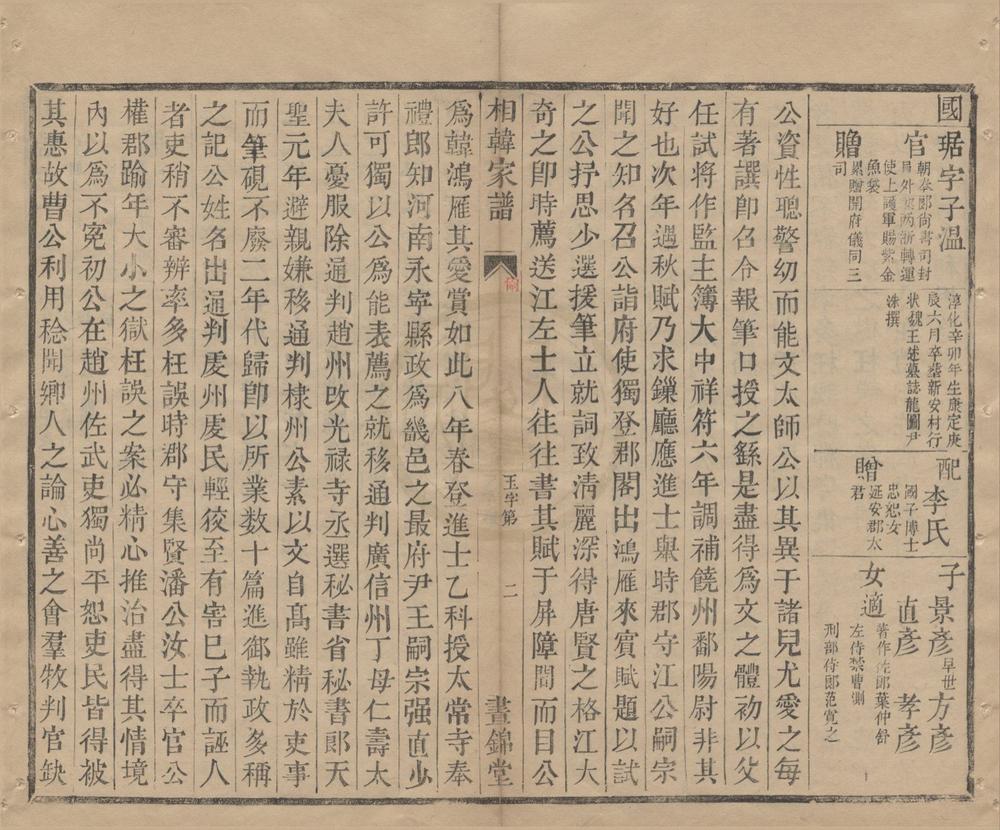 國
琚字子溫
官
朝奉郎尚書司封
員外郎兩浙轉運
使上護軍賜紫金
魚袋
贈
累贈開府儀同三
司
淳化辛卯年生康定庚
辰六月卒葬新安村行
狀魏王述墓誌龍圖尹
洙撰
配
李氏
國子博士
忠恕女
贈
延安郡太
君
子
景彥早世
方彥
直彥
孝彥
女適
著作佐郎葉仲舒
左侍禁曹測
刑部侍郎范寬之
公資性聰警幼而能文太師公以其異于諸兒尤愛之每
有著譔卽召令報筆口授之繇是盡得爲文之體初以父
任試將作監主簿大中祥符六年調補饒州鄱陽尉非其
好也次年遇秋賦乃求鏁廳應進士舉時郡守江公嗣宗
聞之知名召公詣府使獨登郡閣出鴻雁來賓賦題以試
之公抒思少選援筆立就詞致淸麗深得唐賢之格江大
奇之卽時薦送江左士人往往書其賦于屏障間而目公
相韓家譜
玉字第
二
晝錦堂
爲韓鴻雁其愛賞如此八年春登進士乙科授太常寺奉
禮郎知河南永寧縣政爲畿邑之最府尹王嗣宗强直少
許可獨以公爲能表薦之就移通判廣信州丁母仁壽太
夫人憂服除通判趙州攺光禄寺丞選秘書省秘書郎天
聖元年避親嫌移通判棣州公素以文自髙雖精於吏事
而筆硯不廢二年代歸卽以所業数十篇進御執政多稱
之記公姓名出通判䖏州䖏民輕狡至有害巳子而誣人
者吏稍不審辨率多枉誤時郡守集賢潘公汝士卒官公
權郡踰年大小之獄枉誤之案必精心推治盡得其情境
內以爲不冤初公在趙州佐武吏獨尚平恕吏民皆得被
其惠故曹公利用稔聞鄉人之論心善之會羣牧判官缺